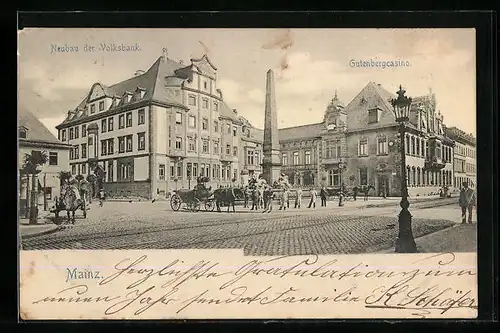 Neubau der Volksbank.
Gutenbergcasino.
Mainz.
Herzlichste Gratulation zum
neuen Jahr sendet Familie K. Schäfer